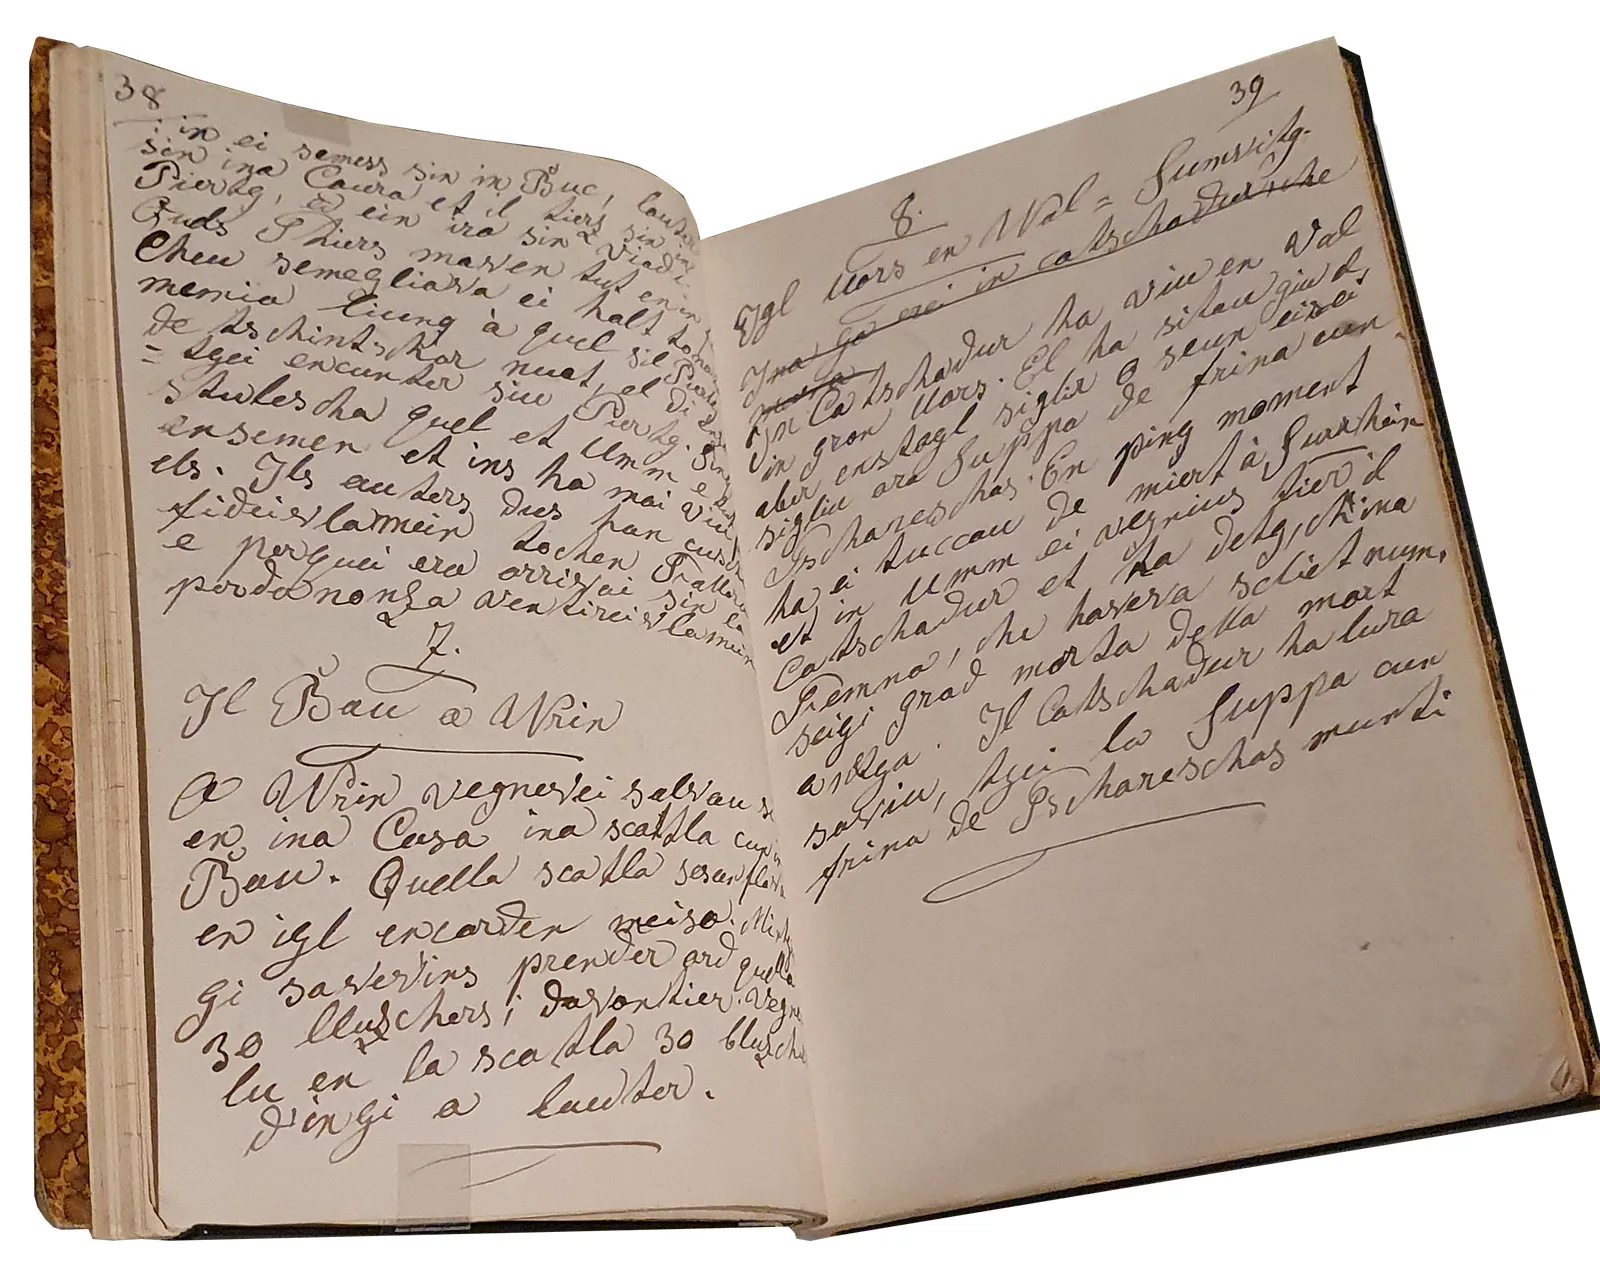 38
in ei semess sin in Buc, lauter
sin ina Caura et il tiers sin in
Piertg, à ein ira sin viadi.
Quds Thiers maven tut en in
Cheu semegliava ei halt
memia liung à quel sil Piertg
de tschintschar nuot, et di
= tgei encunter siu Piertg.
stulescha quel et Umm e
ensemen et ins ha mai viu
els. Ils auters dus han
fideivlamein tochen
e perquei era arrivai sin la
perdanonza ventireivlamein
7.
Il Bau a Wrin
A Wrin vegnevei salvau
en ina Casa ina scattla cun in
Bau. Quella scatla sesanflava
en igl encarden meisa. Mintg
gi savevins prender ord quella
30 bluschers; davontier vegne
lu en la scatla 30 blusch
d'in gi a lauter.
39
8.
Igl Uors en Wal = Sumvitg.
Ina ga eri in catschadur che
In Catschadur ha viu en Val
in gron Uors. El ha sitau giu d,
aber enstagl siglir o seun eisei
sigliu ora Suppa de frina cun
Tschareschas. En ping moment
ha ei tuccau de miert à Surrhein
et in Umm ei vegnius tier il
Catschadur et ha detg, ch'ina
Femna, che haveva schiet num,
seigi grad morta della mort
andtga. Il Catschadur ha lura
saviu, tgei la Suppa cun
frina de Tschareschas munti